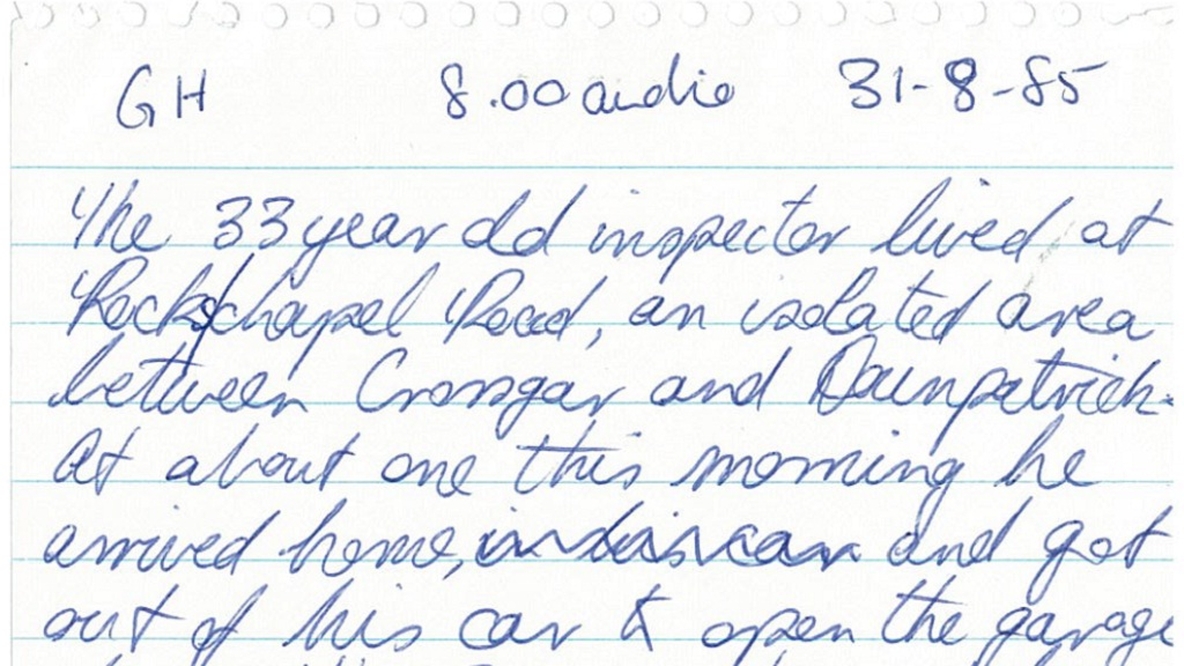 GH 8.00 audio 31-8-85
The 33 year old inspector lived at
Rockschapel Road, an isolated area
between Crossgar and Downpatrick.
At about one this morning he
arrived home, in his car and got
out of his car to open the garage